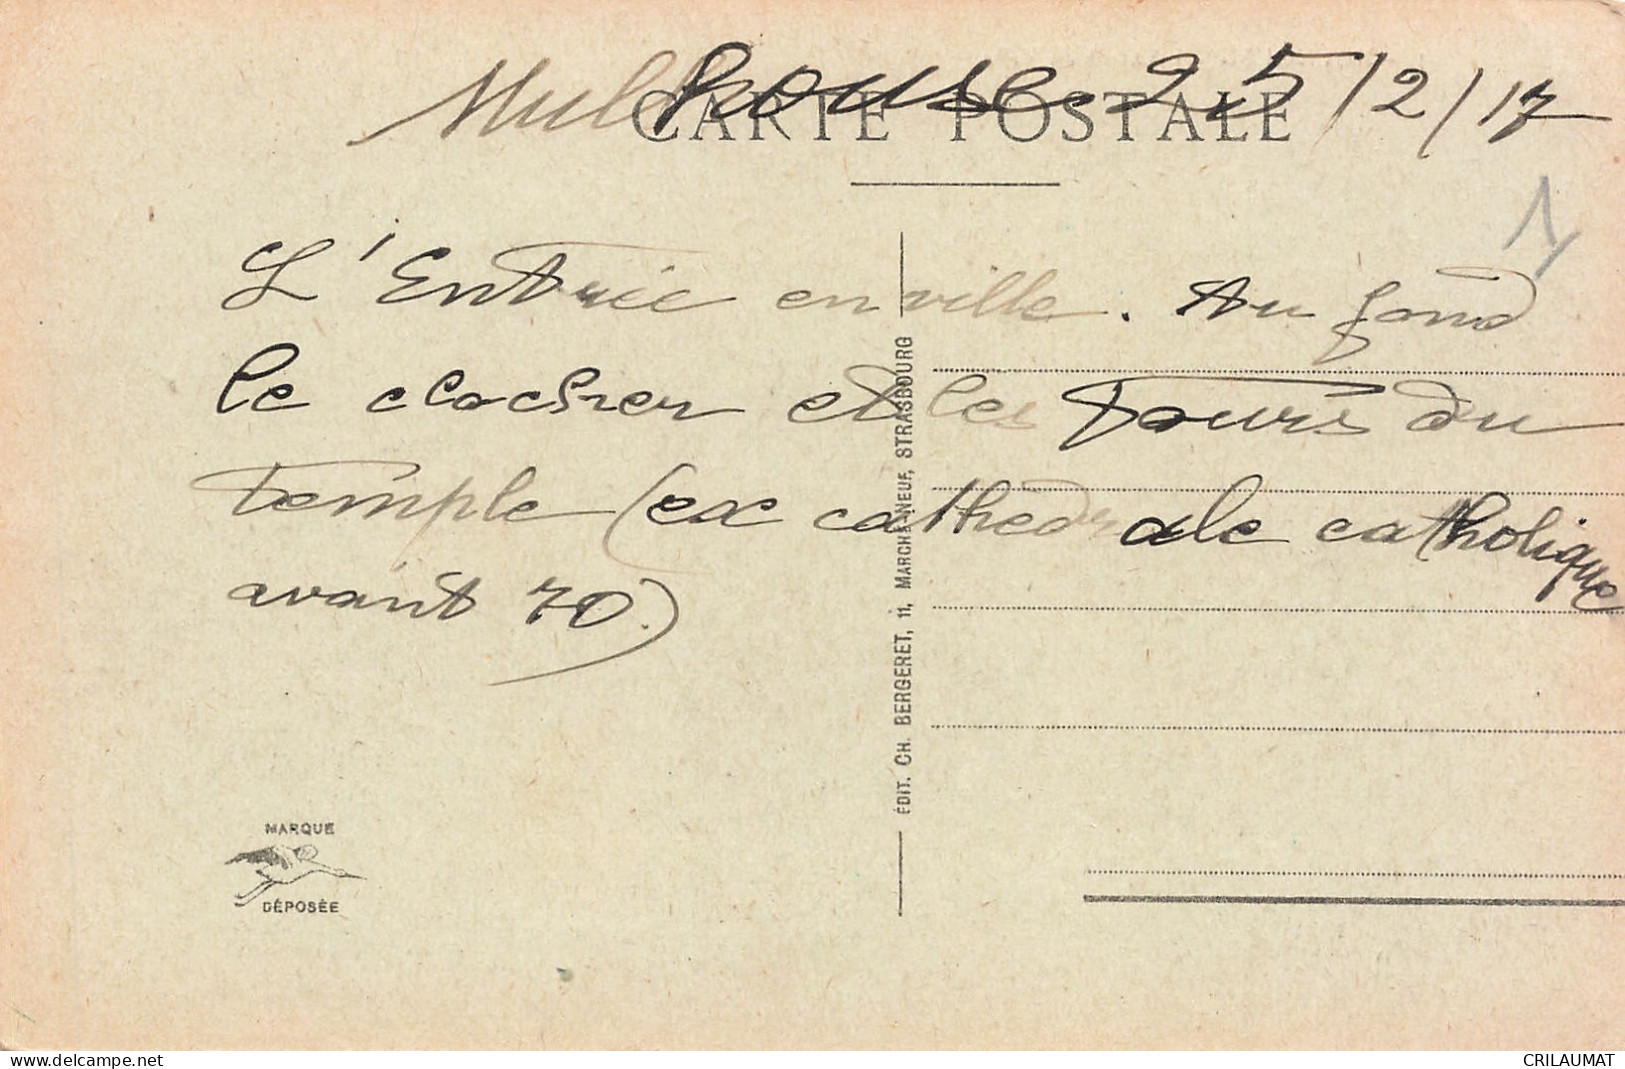 Mulhouse 25/2/17
CARTE POSTALE
L'Entrée en ville. Au fond
le clocher et les Tours du
Temple (ex cathédrale catholique
avant 70)
ÉDIT. CH. BERGERET, 11, MARCHÉ-NEUF, STRASBOURG
MARQUE
DÉPOSÉE
www.delcampe.net
CRILAUMAT